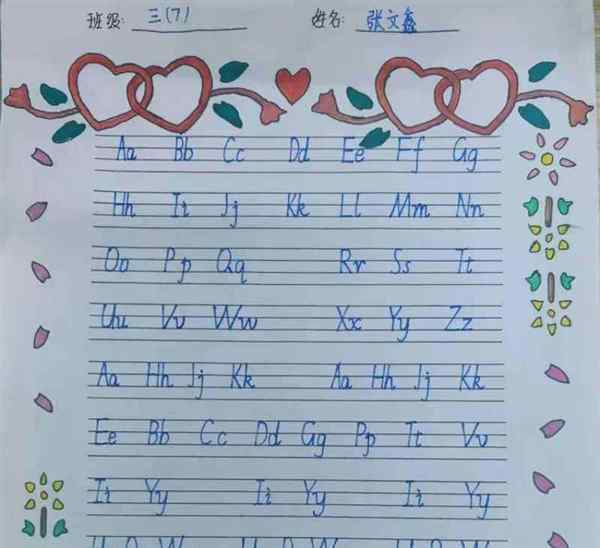 班级: 三(7) 姓名: 张文鑫
Aa Bb Cc Dd Ee Ff Gg
Hh Ii Jj Kk Ll Mm Nn
Oo Pp Qq Rr Ss Tt
Uu Vv Ww Xx Yy Zz
Aa Hh Jj Kk Aa Hh Jj Kk
Ee Bb Cc Dd Gg Pp Tt Vv
Ii Yy Ii Yy Ii Yy